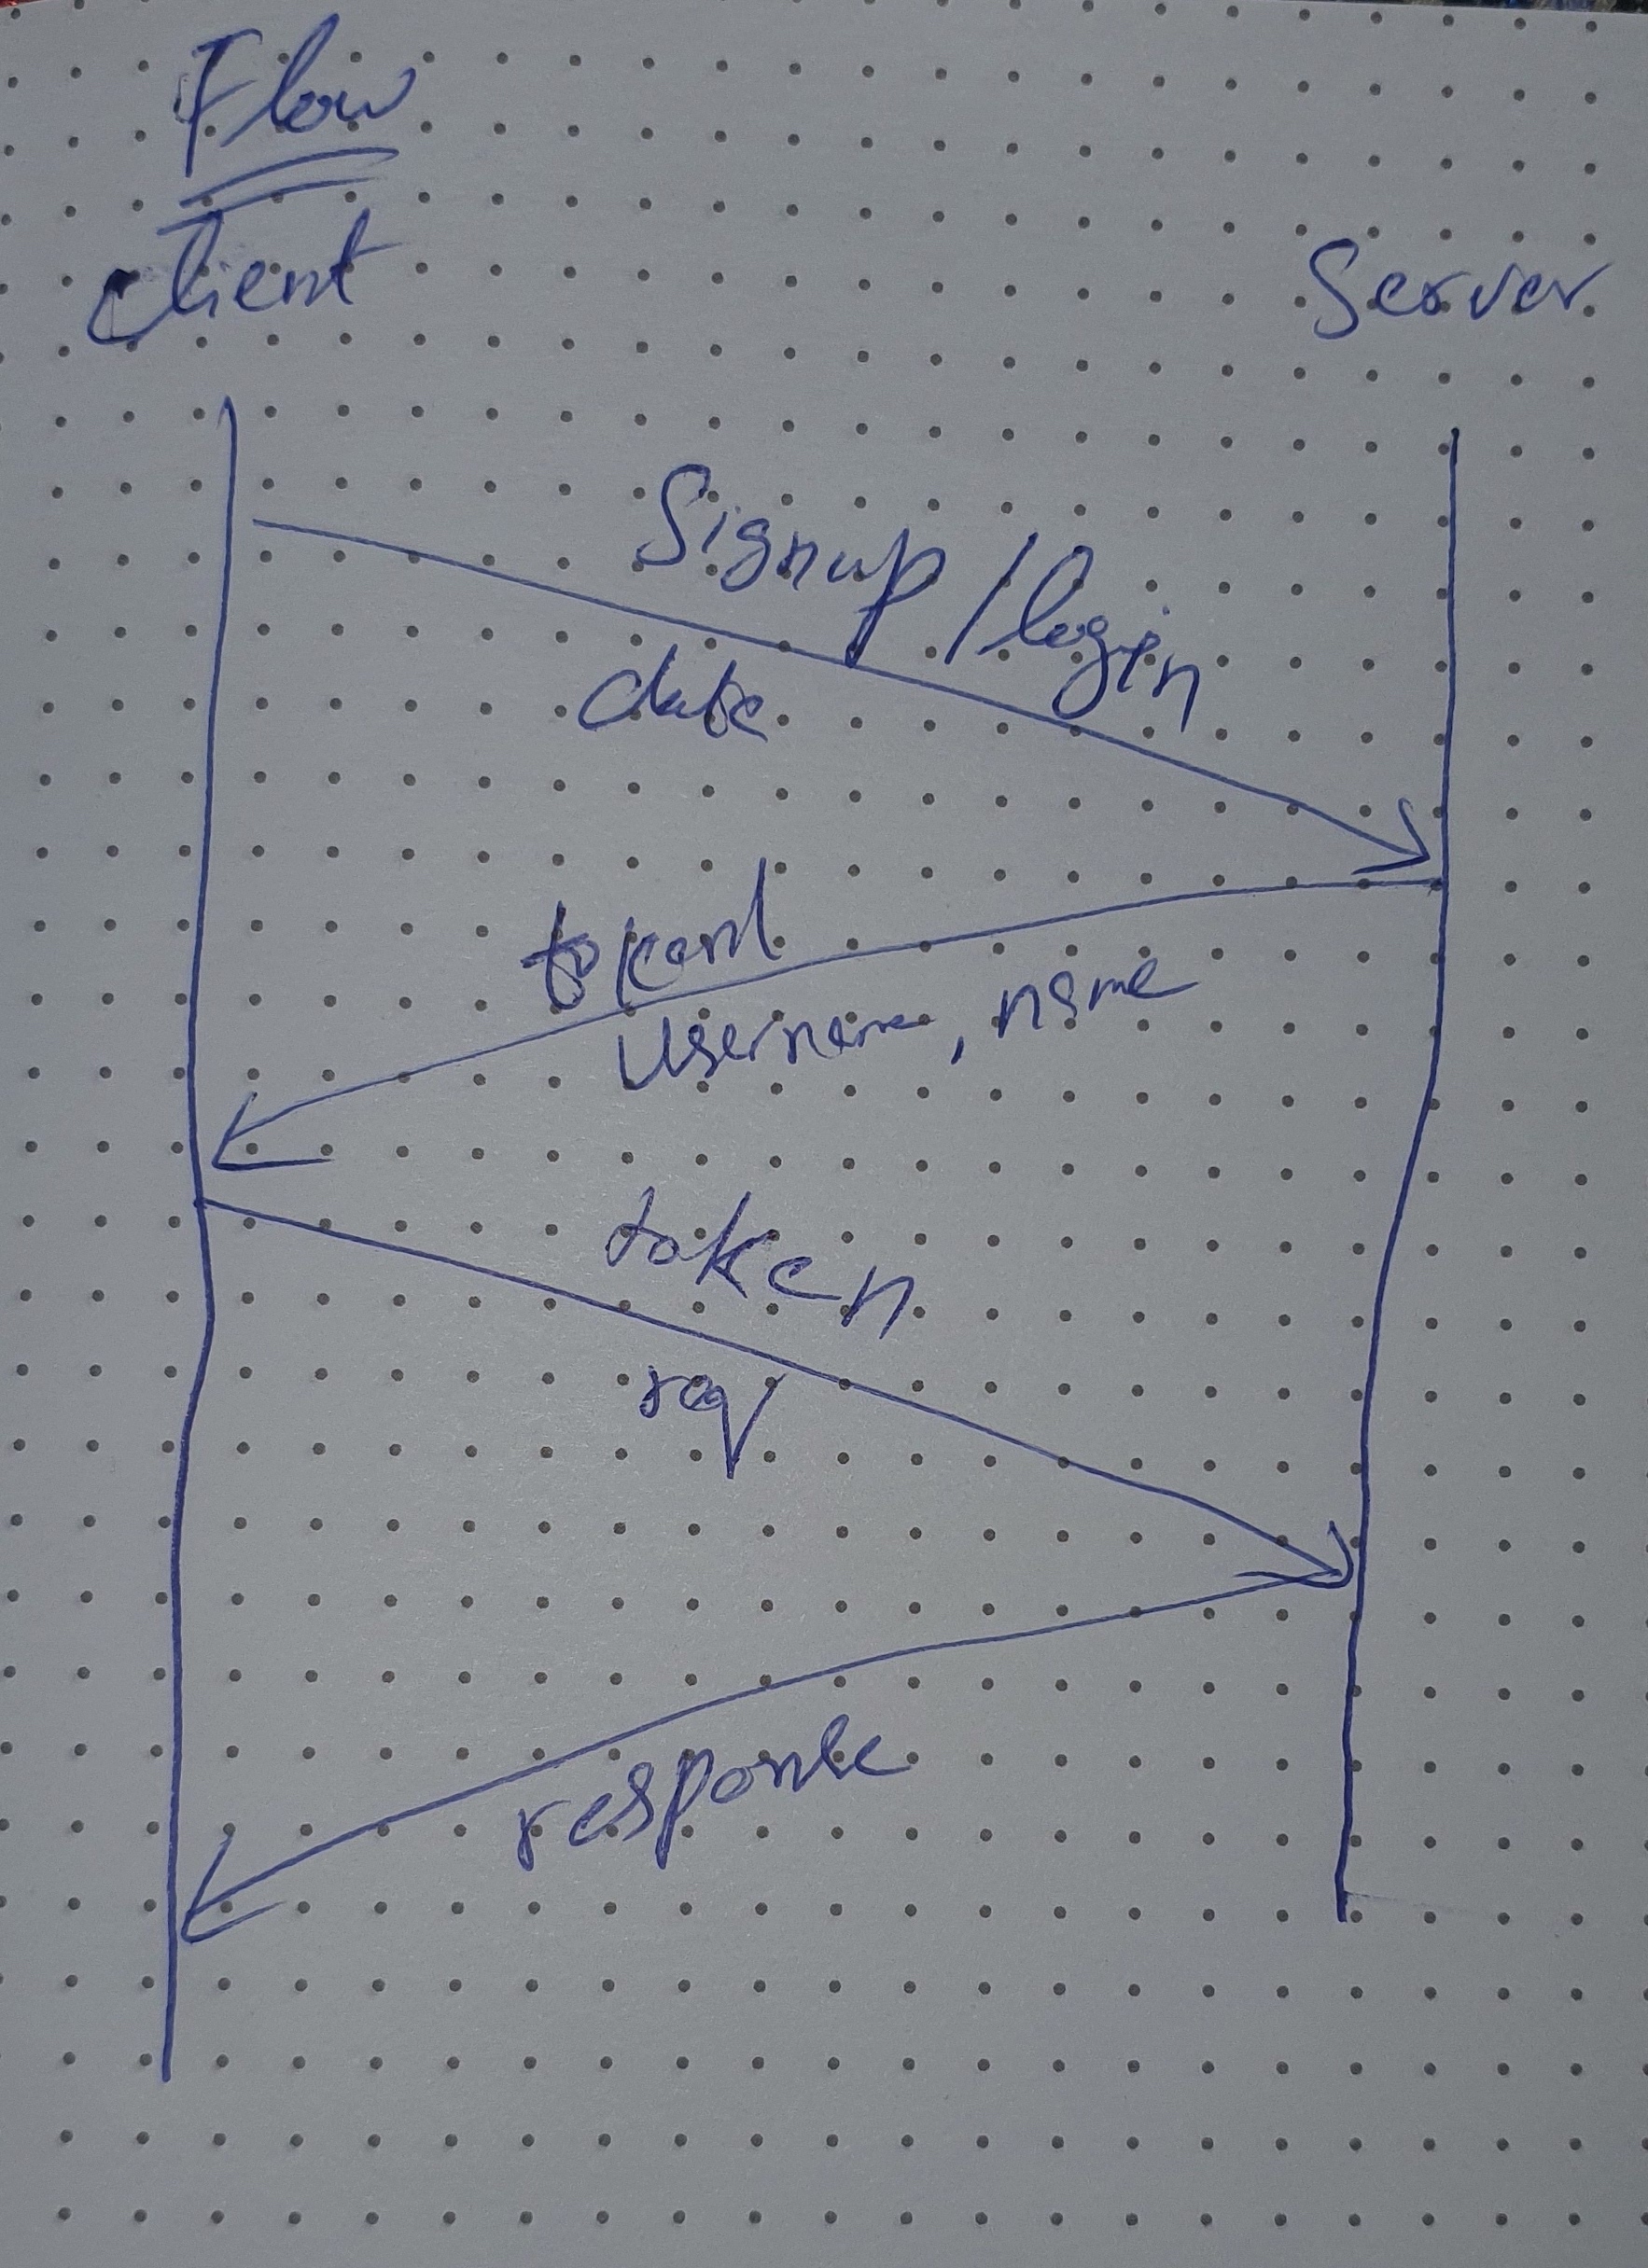 Flow
client
Server
Signup / login
data
token
Username, name
token
req
response